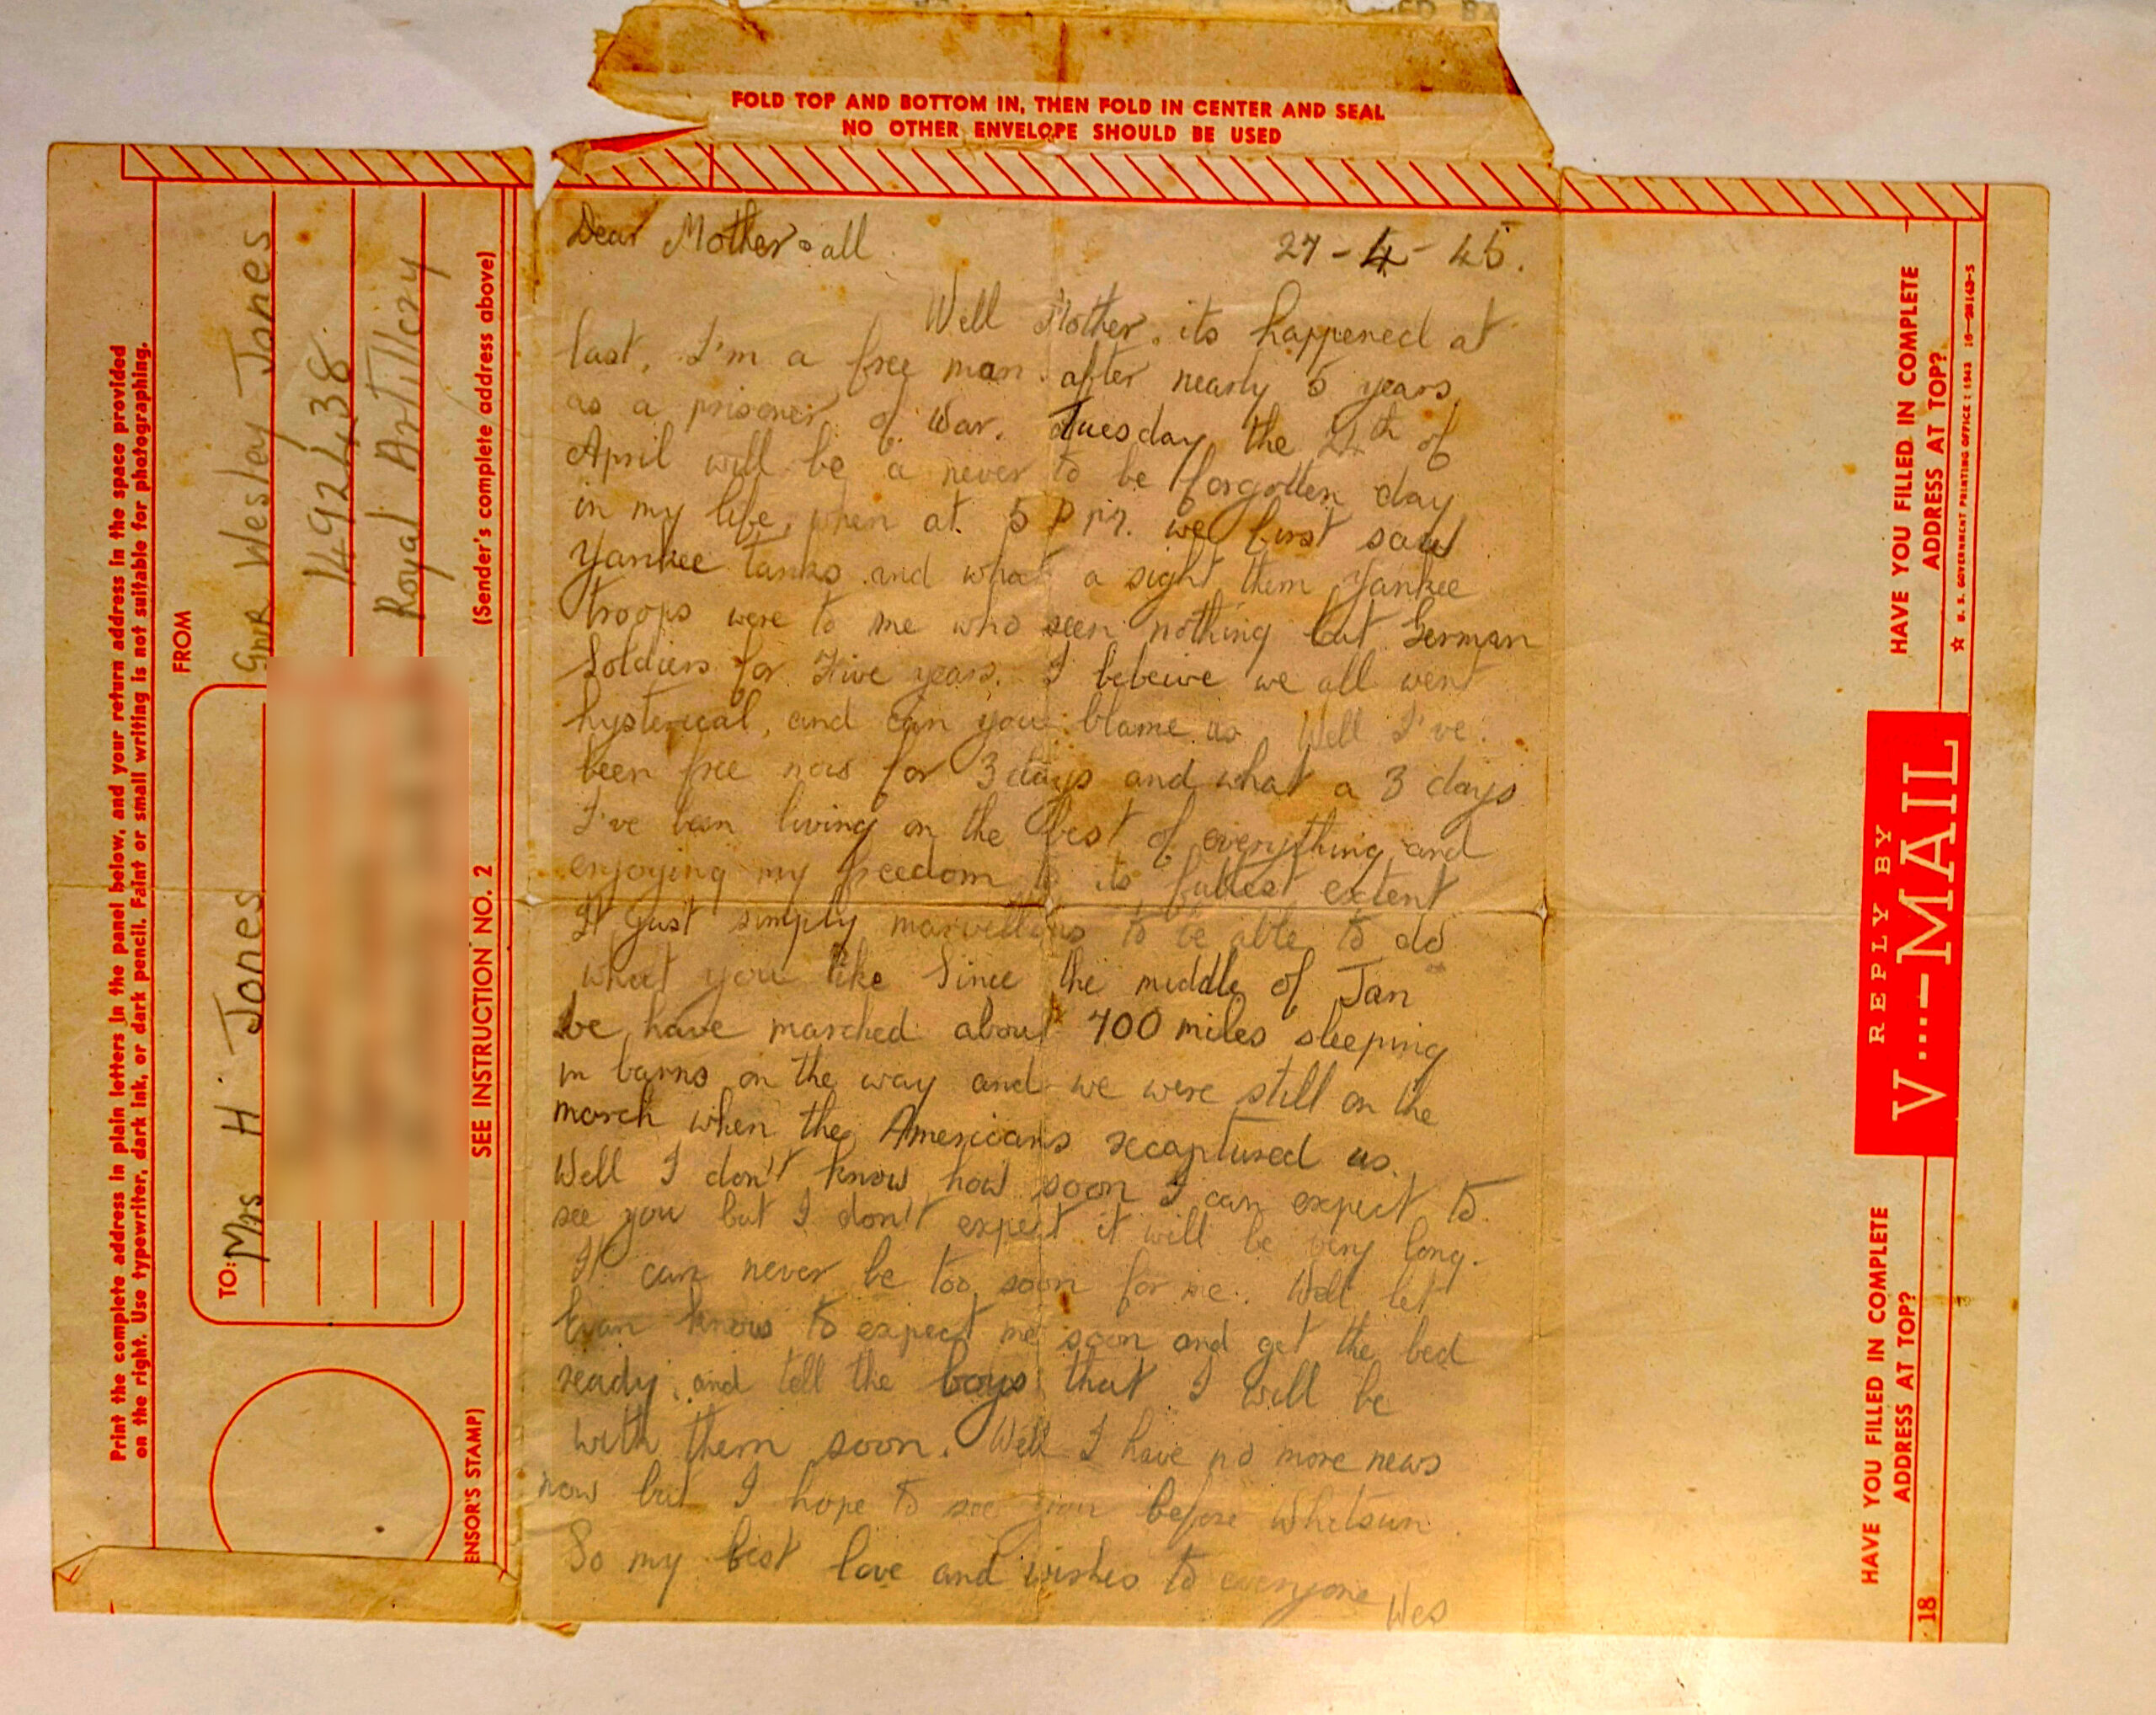 FOLD TOP AND BOTTOM IN, THEN FOLD IN CENTER AND SEAL
NO OTHER ENVELOPE SHOULD BE USED
Print the complete address in plain letters in the panel below, and your return address in the space provided
on the right. Use typewriter, dark ink, or dark pencil. Faint or small writing is not suitable for photographing.
FROM
Gnr Wesley Jones
1492438
Royal Artillery
(Sender's complete address above)
TO:
Mrs H. Jones
SEE INSTRUCTION NO. 2
ENSOR'S STAMP)
Dear Mother & all
27-4-45.
Well Mother, its happened at
last, I'm a free man after nearly 5 years
as a prisoner of War. Tuesday the 24th of
April will be a never to be forgotten day
in my life, when at 5 p.m. we first saw
Yankee tanks and what a sight them Yankee
troops were to me who seen nothing but German
Soldiers for Five years. I beleive we all went
hysterical, and can you blame us Well I've
been free now for 3 days and what a 3 days
I've been living on the best of everything and
enjoying my freedom to its fullest extent
It just simply marvellous to be able to do
what you like Since the middle of Jan
we have marched about 700 miles sleeping
in barns on the way and we were still on the
march when the Americans recaptured us.
Well I don't know how soon I can expect to
see you but I don't expect it will be very long.
It can never be too soon for me. Well let
know to expect me soon and get the bed
ready, and tell the boys that I will be
with them soon. Well I have no more news
now but I hope to see you before Whitsun.
So my best love and wishes to everyone
Wes
HAVE YOU FILLED IN COMPLETE
ADDRESS AT TOP?
☆ U. S. GOVERNMENT PRINTING OFFICE : 1943 16—28143-5
REPLY BY
V...—MAIL
HAVE YOU FILLED IN COMPLETE
ADDRESS AT TOP?
18